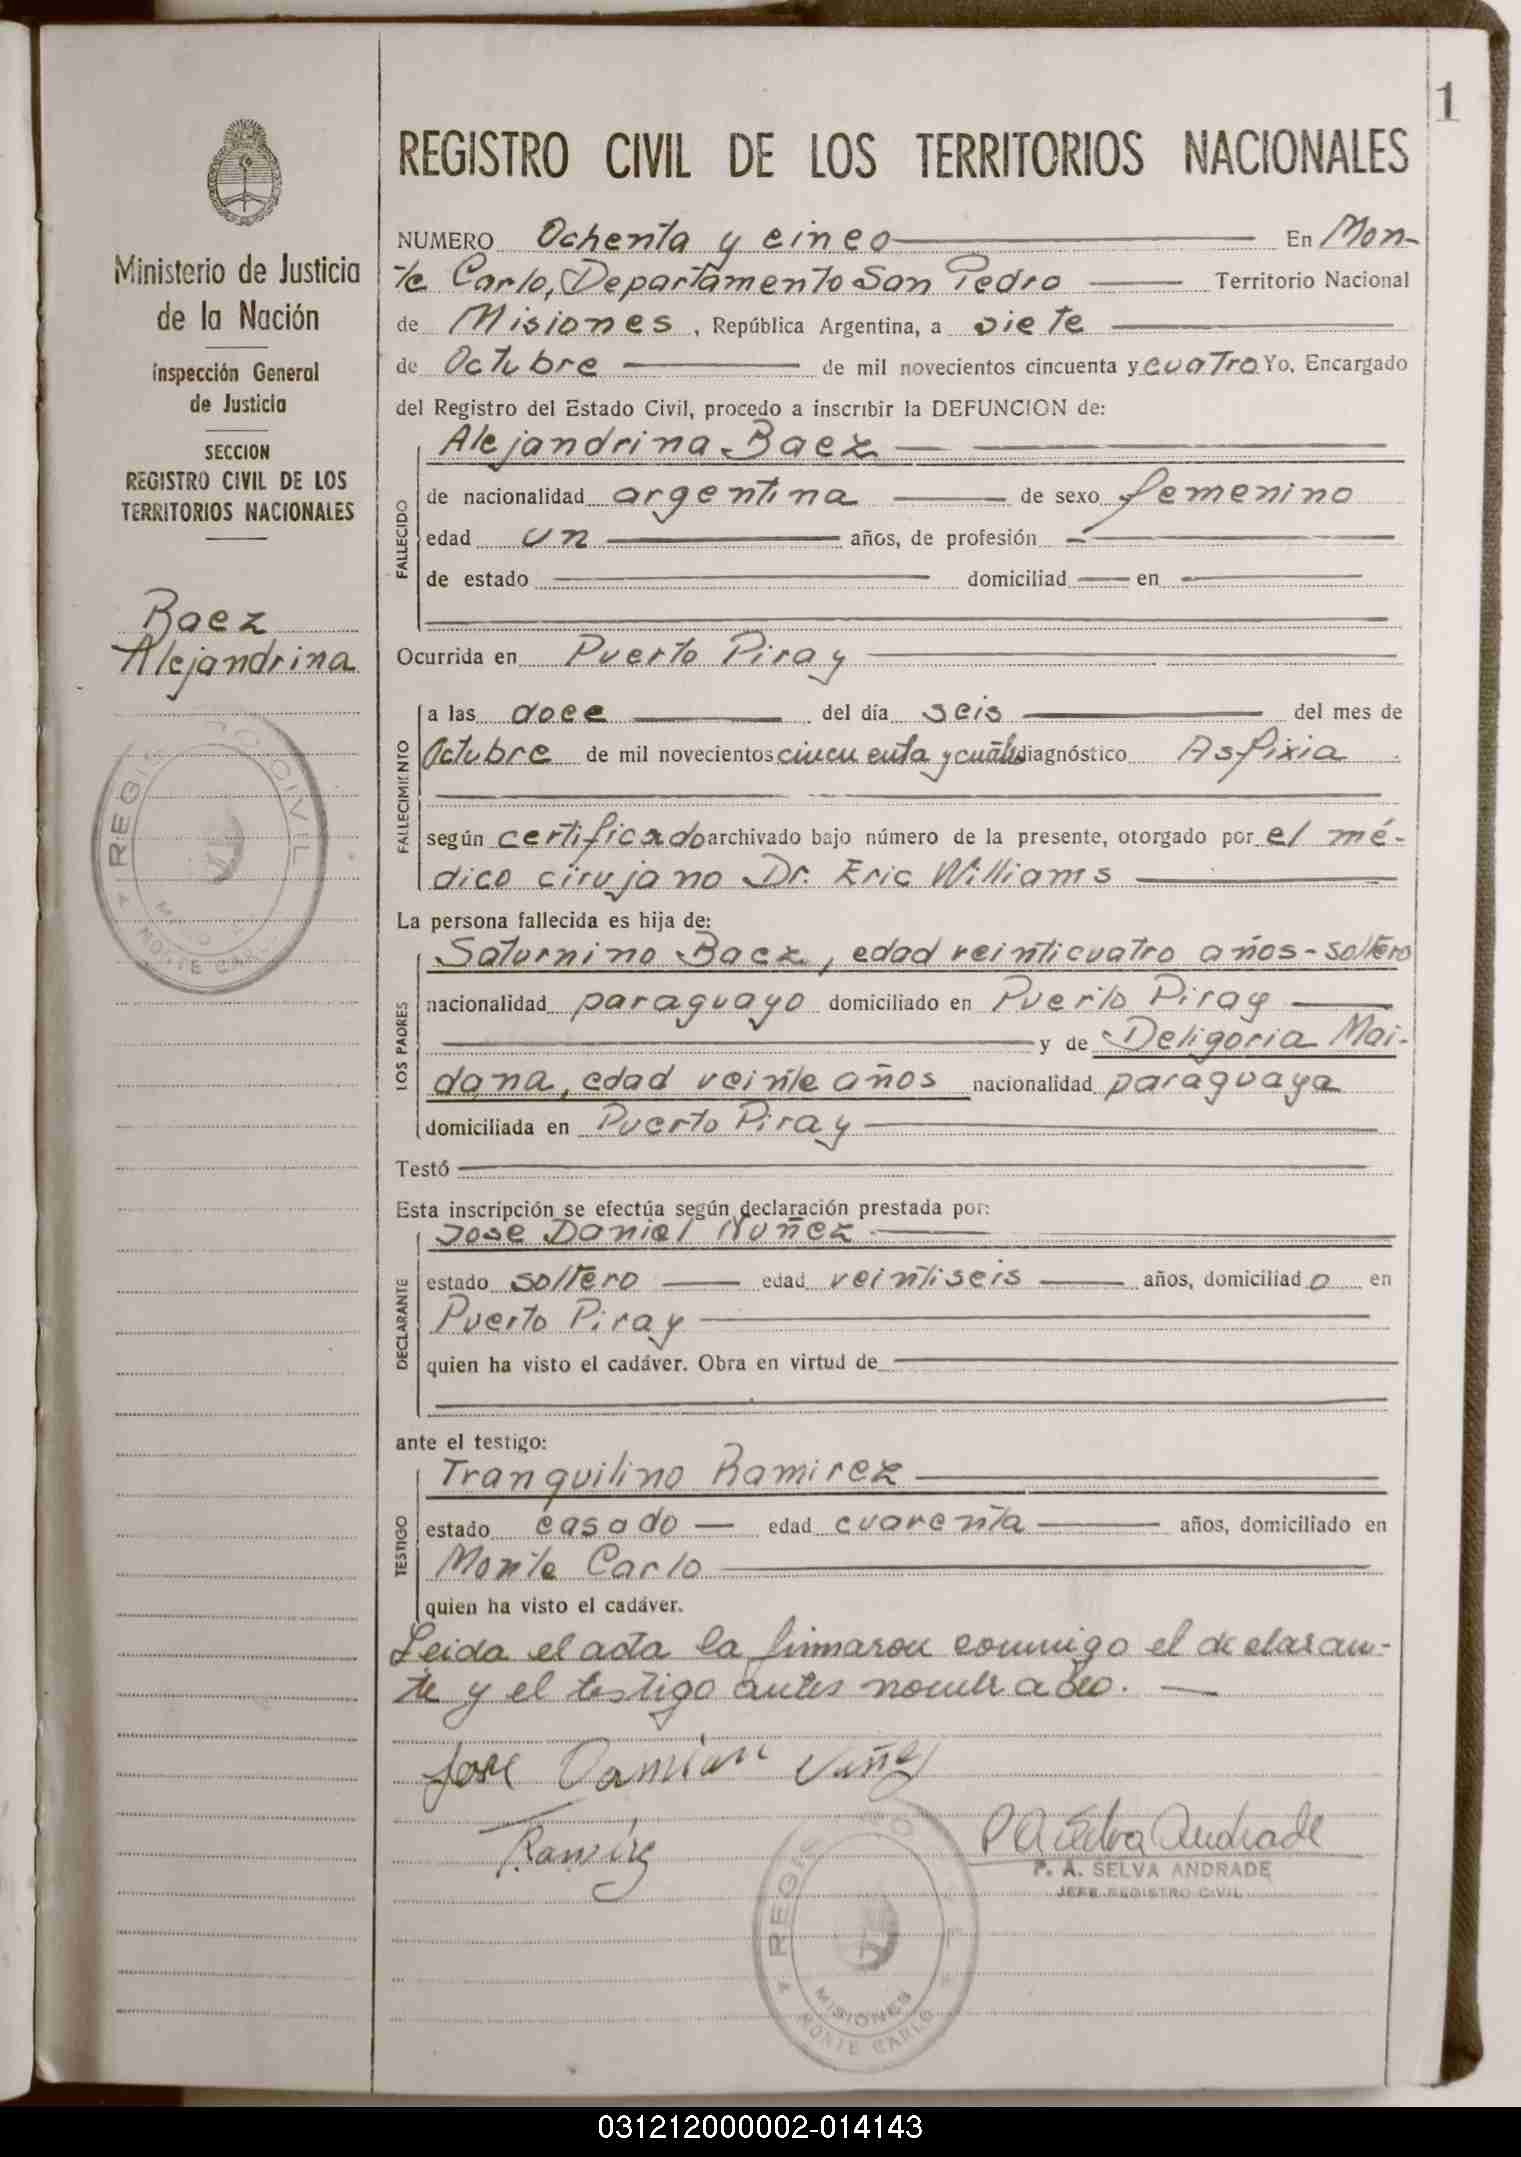 1
REGISTRO CIVIL DE LOS TERRITORIOS NACIONALES
Ministerio de Justicia
de la Nación
Inspección General
de Justicia
SECCION
REGISTRO CIVIL DE LOS
TERRITORIOS NACIONALES
Baez
Alejandrina
REGIS CIVIL
MONTE CARLO
NUMERO Ochenta y cinco En Mon-
te Carlo, Departamento San Pedro Territorio Nacional
de Misiones, República Argentina, a siete
de Octubre de mil novecientos cincuenta y cuatro Yo, Encargado
del Registro del Estado Civil, procedo a inscribir la DEFUNCION de:
FALLECIDO
Alejandrina Baez
de nacionalidad argentina de sexo femenino
edad un años, de profesión
de estado domiciliad en
Ocurrida en Puerto Piray
FALLECIMIENTO
a las doce del día seis del mes de
Octubre de mil novecientos cincuenta y cuatro diagnóstico Asfixia
según certificado archivado bajo número de la presente, otorgado por el mé-
dico cirujano Dr. Eric Williams
La persona fallecida es hija de:
LOS PADRES
Saturnino Baez, edad veinticuatro años - soltero
nacionalidad paraguayo domiciliado en Puerto Piray
y de Deligoria Mai-
dana, edad veinte años nacionalidad paraguaya
domiciliada en Puerto Piray
Testó
Esta inscripción se efectúa según declaración prestada por:
DECLARANTE
Jose Daniel Nuñez
estado soltero edad veintiseis años, domiciliado en
Puerto Piray
quien ha visto el cadáver. Obra en virtud de
ante el testigo:
TESTIGO
Tranquilino Ramirez
estado casado edad cuarenta años, domiciliado en
Monte Carlo
quien ha visto el cadáver.
Leida el acta la firmaron conmigo el declaran-
te y el testigo antes nombrado.
Jose Damian Nuñez
T Ramirez
P A Selva Andrade
P. A. SELVA ANDRADE
JEFE REGISTRO CIVIL
REGIS
MISIONES
MONTE CARLO
031212000002-014143